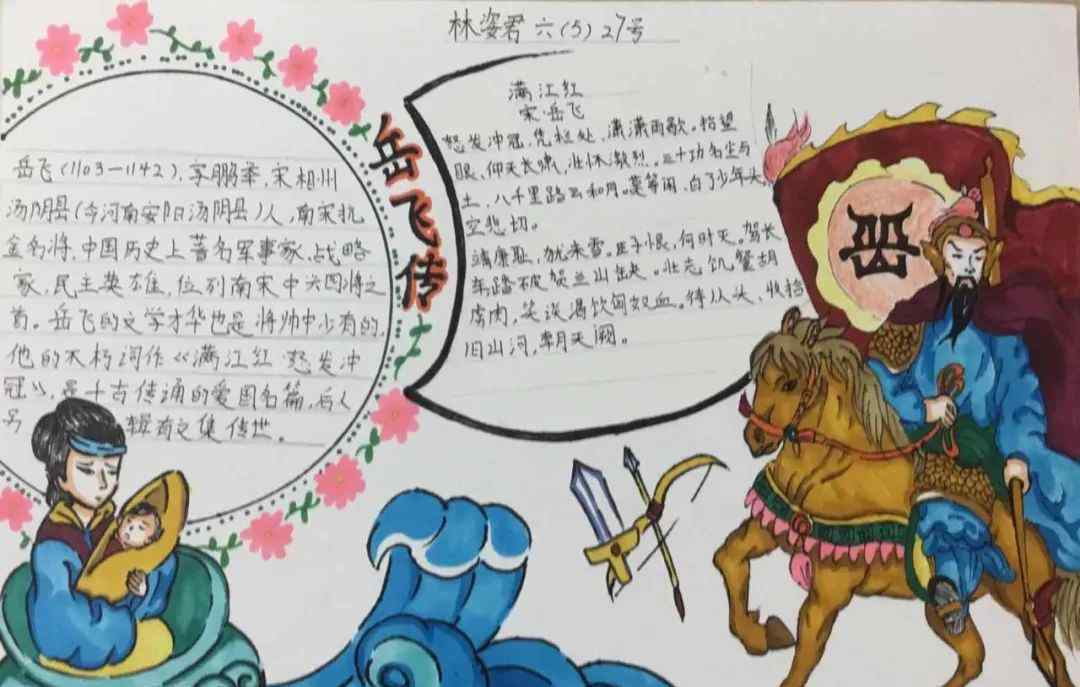 林姿君 六(5) 27号
岳飞传
岳飞(1103—1142),字鹏举,宋相州
汤阴县(今河南安阳汤阴县)人,南宋抗
金名将,中国历史上著名军事家、战略
家,民主英雄,位列南宋中兴四将之
首。岳飞的文学才华也是将帅中少有的,
他的不朽词作《满江红·怒发冲
冠》,是千古传诵的爱国名篇,后人
辑有文集传世。
满江红
宋·岳飞
怒发冲冠,凭栏处、潇潇雨歇。抬望
眼,仰天长啸,壮怀激烈。三十功名尘与
土,八千里路云和月。莫等闲,白了少年头,
空悲切。
靖康耻,犹未雪。臣子恨,何时灭。驾长
车踏破贺兰山缺。壮志饥餐胡
虏肉,笑谈渴饮匈奴血。待从头、收拾
旧山河,朝天阙。
岳